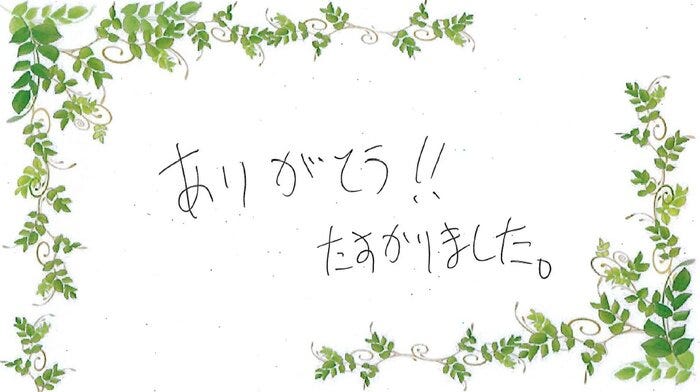 ありがてう!!
たすかりました。